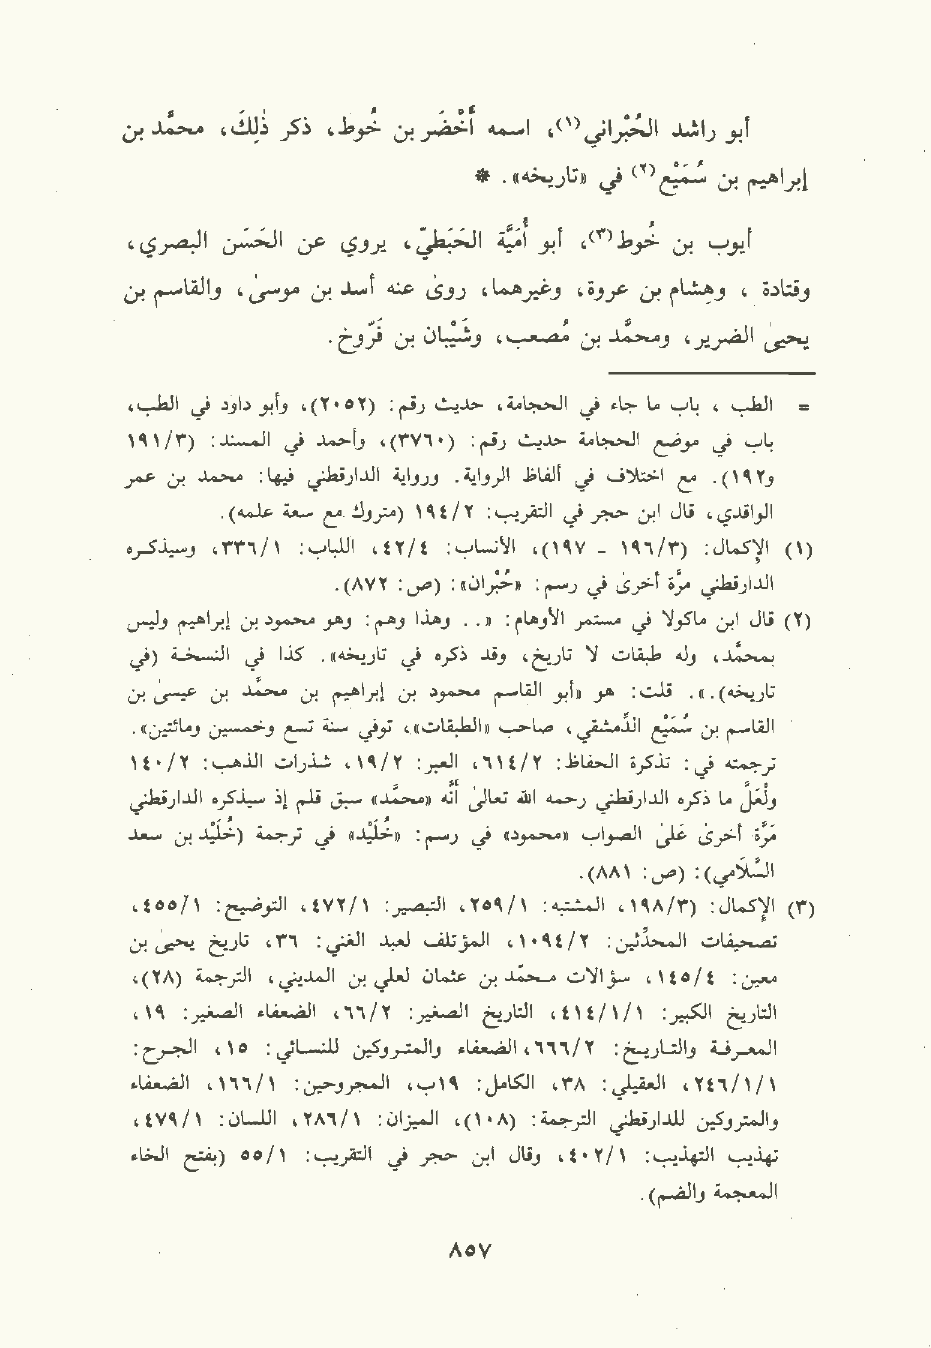 أبو راشد الخُبْراني(١)، اسمه أَخْضَر بن خُوط، ذكر ذٰلِكَ، محمَّد بن
إبراهيم بن سُمَيْع(٢) في «تاريخه». *
أيوب بن خُوط(٣)، أبو أُمَيَّة الحَبَطيّ، يروي عن الحَسَن البصري،
وقتادة ، وهشام بن عروة، وغيرهما، روىٰ عنه أسد بن موسىٰ، والقاسم بن
يحيىٰ الضرير، ومحمَّد بن مُصعب، وشَيْبان بن فَرّوخ.
= الطب ، باب ما جاء في الحجامة، حديث رقم: (٢٠٥٢)، وأبو داود في الطب،
باب في موضع الحجامة حديث رقم: (٣٧٦٠)، وأحمد في المسند: (٣/١٩١
و١٩٢). مع اختلاف في ألفاظ الرواية. ورواية الدارقطني فيها: محمد بن عمر
الواقدي، قال ابن حجر في التقريب: ٢/١٩٤ (متروك. مع سعة علمه).
(١) الإكمال: (٣/١٩٦ - ١٩٧)، الأنساب: ٤/٤٢، اللباب: ١/٣٣٦، وسيذكره
الدارقطني مرَّة أخرىٰ في رسم: «خُبْران»: (ص: ٨٧٢).
(٢) قال ابن ماكولا في مستمر الأوهام: «.. وهذا وهم: وهو محمود بن إبراهيم وليس
بمحمَّد، وله طبقات لا تاريخ، وقد ذكره في تاريخه». كذا في النسخة (في
تاريخه).». قلت: هو «أبو القاسم محمود بن إبراهيم بن محمَّد بن عيسىٰ بن
القاسم بن سُمَيْع الدِّمشقي، صاحب «الطبقات»، توفي سنة تسع وخمسين ومائتين».
ترجمته في: تذكرة الحفاظ: ٢/٦١٤، العبر: ٢/١٩، شذرات الذهب: ٢/١٤٠
ولَعَلَّ ما ذكره الدارقطني رحمه الله تعالىٰ أنَّه «محمَّد» سبق قلم إذ سيذكره الدارقطني
مَرَّة أخرىٰ علىٰ الصواب «محمود» في رسم: «خُلَيْد» في ترجمة (خُلَيْد بن سعد
السَّلاَمي): (ص: ٨٨١).
(٣) الإكمال: (٣/١٩٨، المشتبه: ١/٢٥٩، التبصير: ١/٤٧٢، التوضيح: ١/٤٥٥،
تصحيفات المحدِّثين: ٢/١٠٩٤، المؤتلف لعبد الغني: ٣٦، تاريخ يحيىٰ بن
معين: ٤/١٤٥، سؤالات محمَّد بن عثمان لعلي بن المديني، الترجمة (٢٨)،
التاريخ الكبير: ١/١/٤١٤، التاريخ الصغير: ٢/٦٦، الضعفاء الصغير: ١٩،
المعرفة والتاريخ: ٢/٦٦٦، الضعفاء والمتروكين للنسائي: ١٥، الجرح:
١/١/٢٤٦، العقيلي: ٣٨، الكامل: ١٩ب، المجروحين: ١/١٦٦، الضعفاء
والمتروكين للدارقطني الترجمة: (١٠٨)، الميزان: ١/٢٨٦، اللسان: ١/٤٧٩،
تهذيب التهذيب: ١/٤٠٢، وقال ابن حجر في التقريب: ١/٥٥ (بفتح الخاء
المعجمة والضم).
٨٥٧